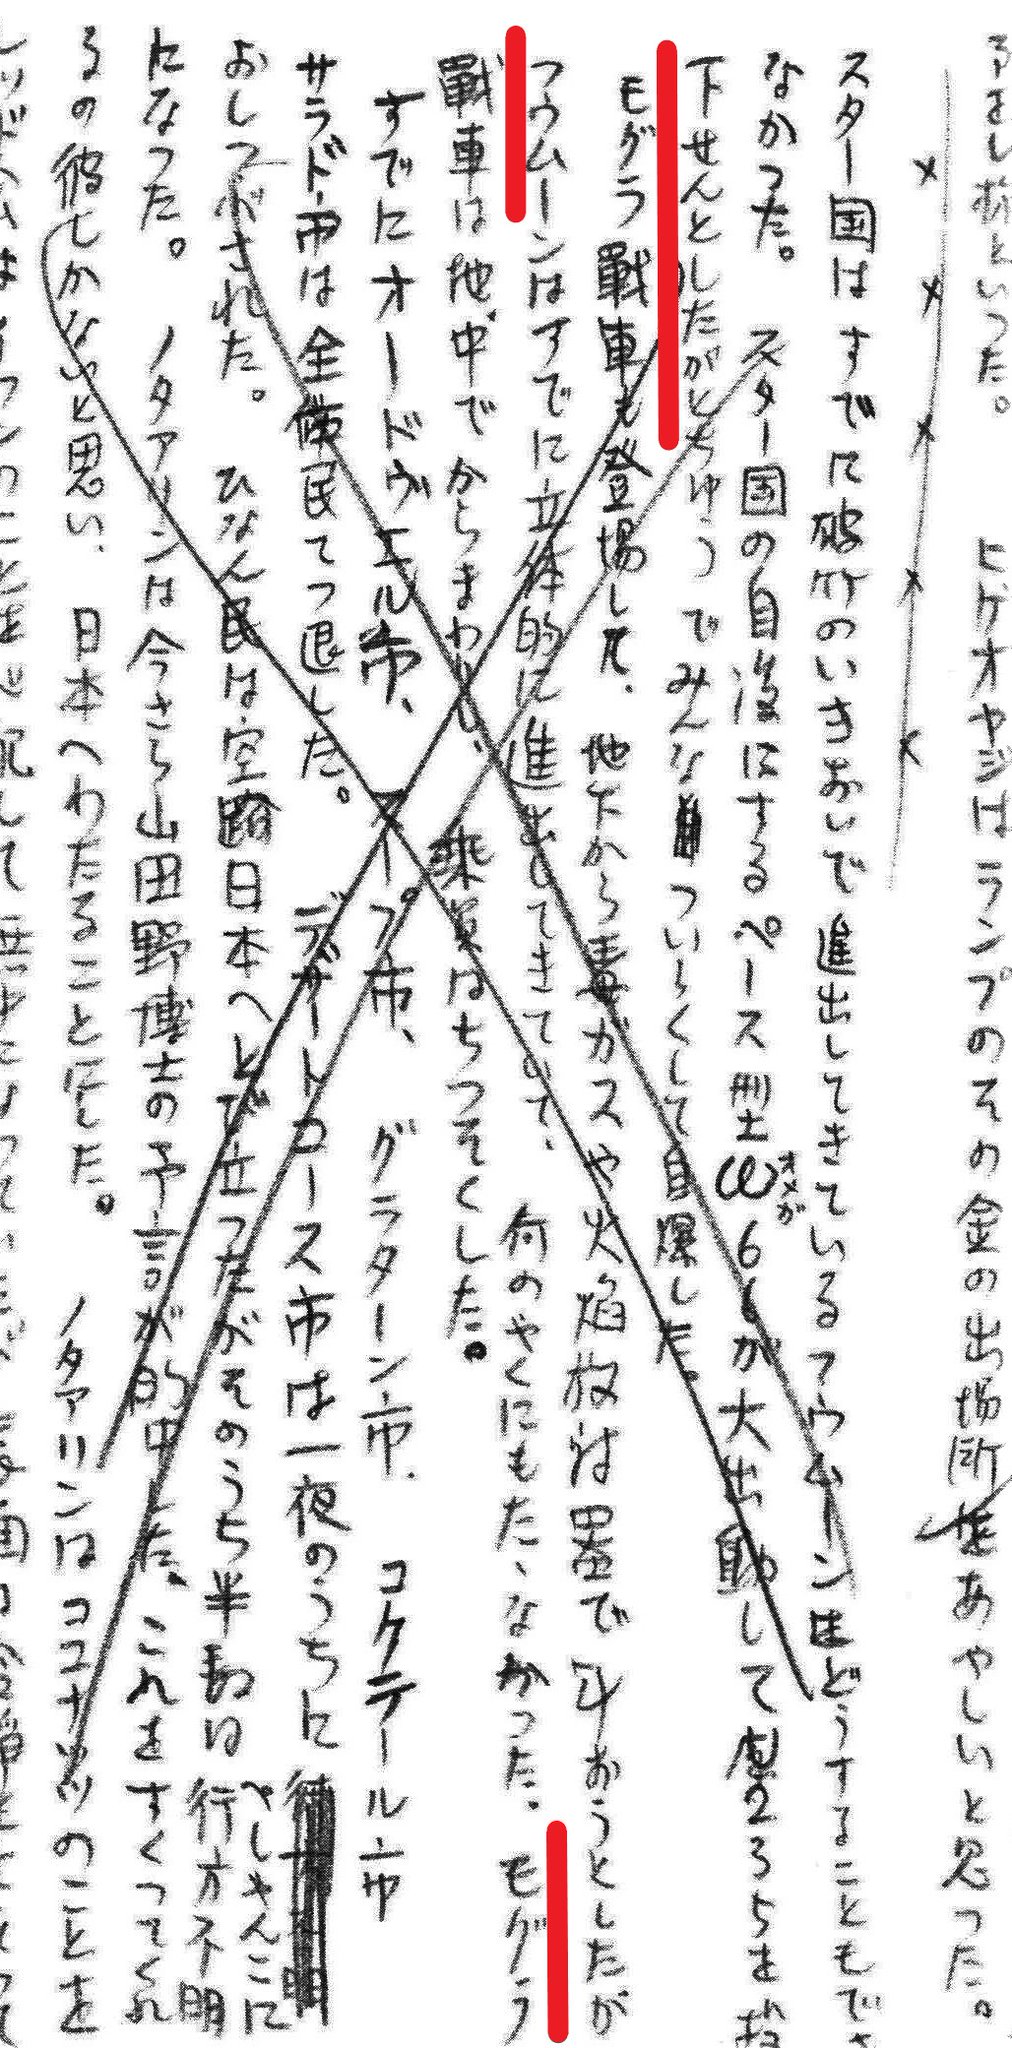 予をし称といった。　ヒゲオヤジはランプのその金の出場所をあやしいと思った。
スター国はすでに破竹のいきおいで進出してきているフウムーンはどうすることもでき
なかった。　スター国の自慢にするペース型ω66が大出動して塵235を投
オメガ
下せんとしたがとちゅうでみんなついらくして自爆した。
モグラ戦車も登場して、地たから毒ガスや火焔放射器で斗おうとしたが
フウムーンはすでに立体的に進出してきていて、何のやくにもたゝなかった。モグラ
戦車は地中でからまわりし、乗員はちっそくした。
すでにオードヴエル市、スープ市、グラターン市、コクテール市
サラド市は全住民てつ退した。　デザートコース市は一夜のうちにぺしやんこに
おしつぶされた。　ひなん民は空路日本へとび立ったがそのうち半数は行方不明
になった。　ノタアリンは今さら山田野博士の予言が的中した。これをすくってくれ
るの彼しかないと思い、日本へわたることにした。　ノタアリンはココナツツのことを